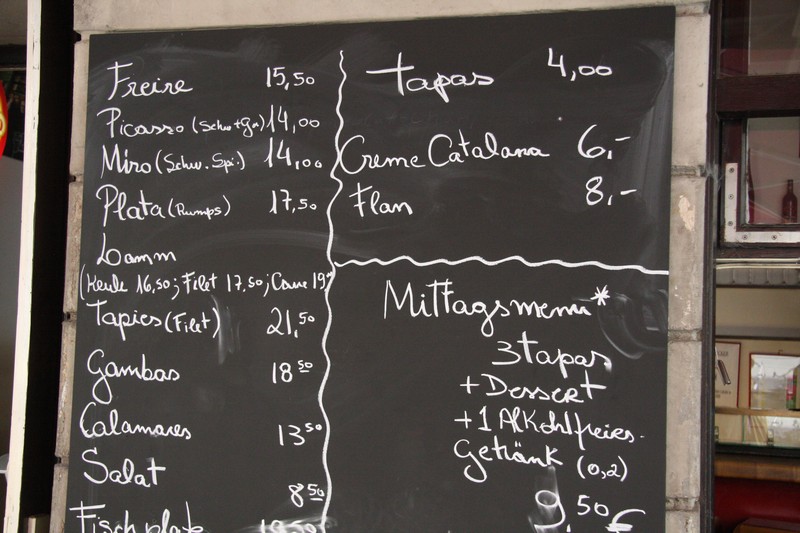 Freire 15,50
Picasso (Schw+Gr) 14,00
Miro (Schw. Spi.) 14,00
Plata (Rumps) 17,50
Lamm
(Keule 16,50; Filet 17,50; Carre 19
Tapies (Filet) 21,50
Gambas 18 50
Calamares 13 50
Salat
8 50
Fischplate
Tapas 4,00
Creme Catalana 6,-
Flan 8,-
Mittagsmenu*
3 tapas
+ Dessert
+ 1 Alkohlfreies.
Getränk (0,2)
9,50 €